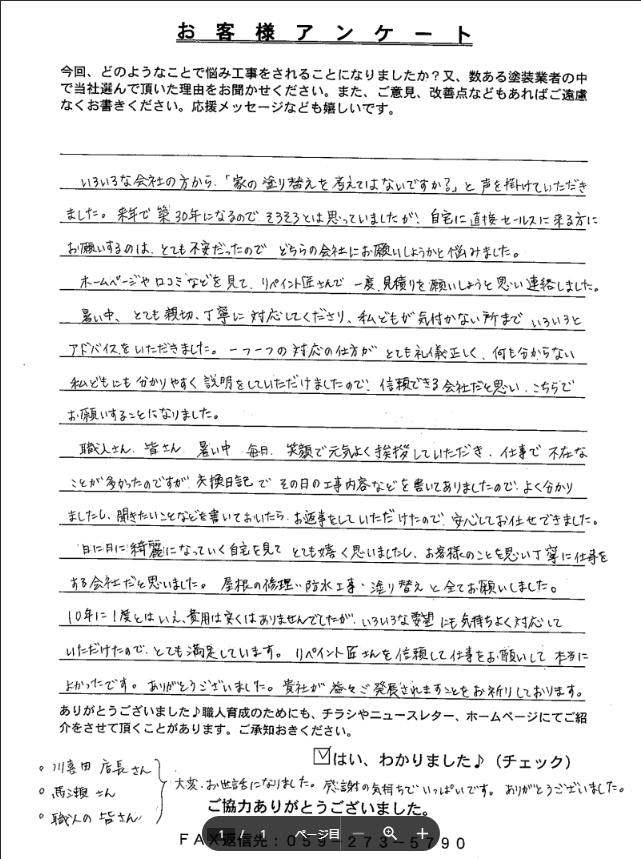 お客様アンケート
今回、どのようなことで悩み工事をされることになりましたか？又、数ある塗装業者の中
で当社選んで頂いた理由をお聞かせください。また、ご意見、改善点などもあればご遠慮
なくお書きください。応援メッセージなども嬉しいです。
いろいろな会社の方から、「家の塗り替えを考えてはないですか？」と声を掛けていただき
ました。来年で築30年になるのでそろそろとは思っていましたが、自宅に直接セールスに来る方に
お願いするのは、とても不安だったので どちらの会社にお願いしようかと悩みました。
ホームページや口コミなどを見て、リペイント匠さんで一度、見積りを願いしようと思い連絡しました。
暑い中、とても親切、丁寧に対応してくださり、私どもが気付かない所まで いろいろと
アドバイスをいただきました。一つ一つの対応の仕方が とても礼儀正しく、何も分からない
私どもにも分かりやすく説明をしていただけましたので、信頼できる会社だと思い、こちらで
お願いすることになりました。
職人さん、皆さん、暑い中 毎日、笑顔で元気よく挨拶していただき、仕事で不在な
ことが多かったのですが、交換日記でその日の工事内容などを書いてありましたので、よく分かり
ましたし、聞きたいことなどを書いておいたら、お返事をしていただけたので、安心してお任せできました。
日に日に綺麗になっていく自宅を見て とても嬉しく思いましたし、お客様のことを思い丁寧に仕事を
する会社だと思いました。屋根の修理・防水工事・塗り替えと全てお願いしました。
10年に1度とはいえ、費用は安くはありませんでしたが、いろいろな要望にも気持ちよく対応して
いただけたので、とても満足しています。リペイント匠さんを信頼して仕事をお願いして 本当に
よかったです。ありがとうございました。貴社が益々ご発展されますことをお祈りしております。
ありがとうございました♪職人育成のためにも、チラシやニュースレター、ホームページにてご紹
介をさせて頂くことがあります。ご承知おきください。
☑はい、わかりました♪（チェック）
。川喜田 店長さん
。馬瀬さん
。職人の皆さん
大変、お世話になりました。感謝の気持ちでいっぱいです。ありがとうございました。
ご協力ありがとうございました。
FAX返信先：059-273-5790
1 / 1 ページ目